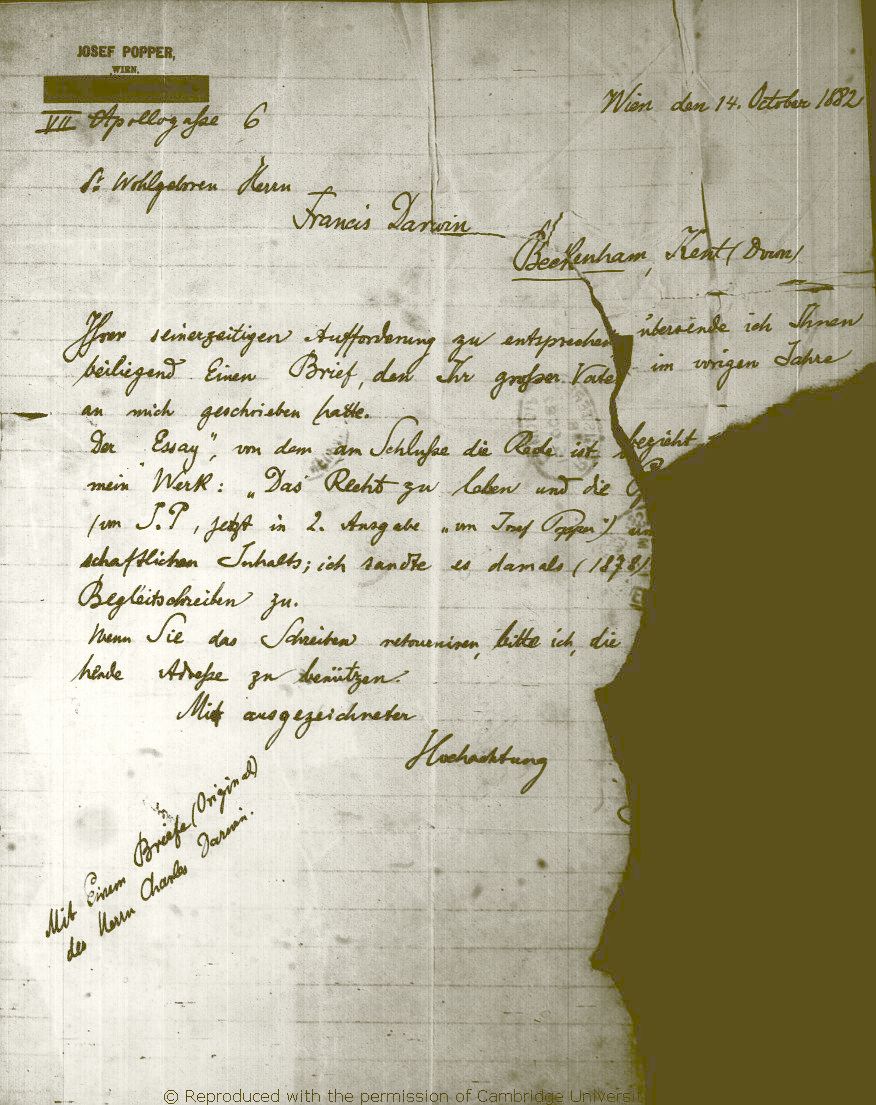 JOSEF POPPER,
WIEN.
VII Apollogaße 6
Wien den 14. October 1882
Sr. Wohlgeboren Herrn
Francis Darwin
Beckenham, Kent (Down)
Ihrer seinerzeitigen Aufforderung zu entsprechen übersende ich Ihnen
beiliegend Einen Brief, den Ihr großer Vater im vorigen Jahre
an mich geschrieben hatte.
Der „Essay", von dem am Schluße die Rede ist, bezieht
mein Werk: „Das Recht zu leben und die
(von J. P, jetzt in 2. Ausgabe „von Josef Popper")
schaftlichen Inhalts; ich sandte es damals (1878)
Begleitschreiben zu.
Wenn Sie das Schreiben retourniren, bitte ich, die
hende Adreße zu benützen.
Mit ausgezeichneter
Hochachtung
Mit Einem Briefe (Original)
des Herrn Charles Darwin.
© Reproduced with the permission of Cambridge Universit